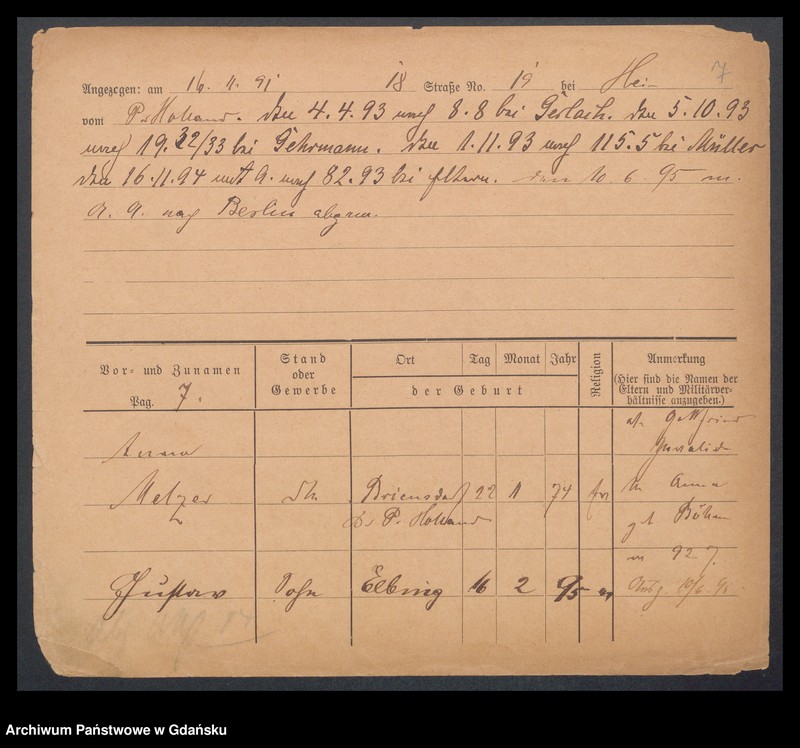 7
Angezogen: am 16. 11. 91 18 Straße No. 19 bei
vom Pr Holland. den 4.4.93 nach 8.8 bei Gerlach. den 5.10.93
nach 19.32/33 bei Gehrmann. den 1.11.93 nach 115.5 bei Müller
den 16.11.94 nach 82.93 bei Eltern. den 10 6. 95 m.
nach Berlin abgem.
Vor- und Zunamen
Pag. 7.
Stand
oder
Gewerbe
Ort Tag Monat Jahr
der Geburt
Religion
Anmerkung
(Hier sind die Namen der
Eltern und Militärver-
hältnisse anzugeben.)
Gottfried
Anna Invalide
Melzer Briensdorf 22 11 74 Anna
Pr Holland
92
Gustav Sohn Elbing 16 2 95
Archiwum Państwowe w Gdańsku